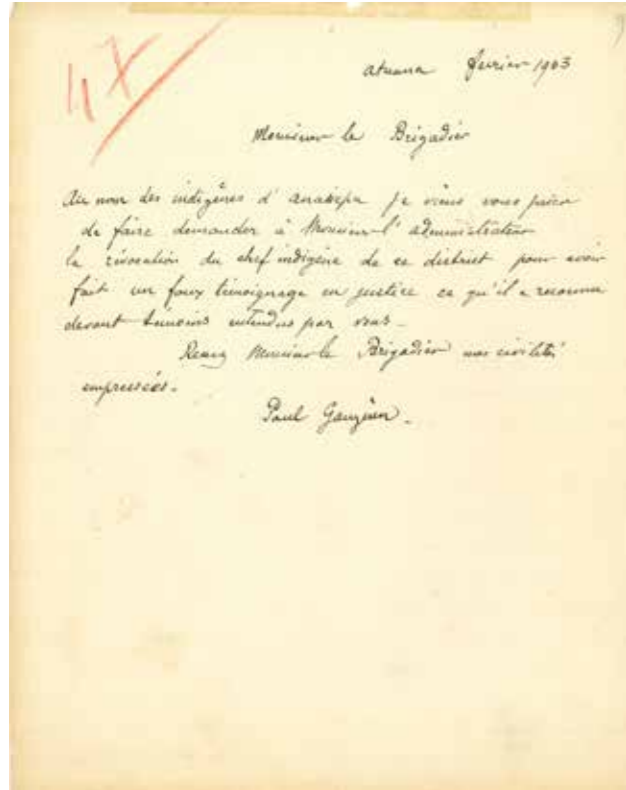 47
atuana février 1903
Monsieur le Brigadier
Au nom des indigènes d' anatepa je viens vous prier
de faire demander à Monsieur l' administrateur
la révocation du chef indigène de ce district pour avoir
fait un faux témoignage en justice ce qu'il a reconnu
devant témoins entendus par vous –
Recevez Monsieur le Brigadier nos civilités
empressées.
Paul Gauguin.